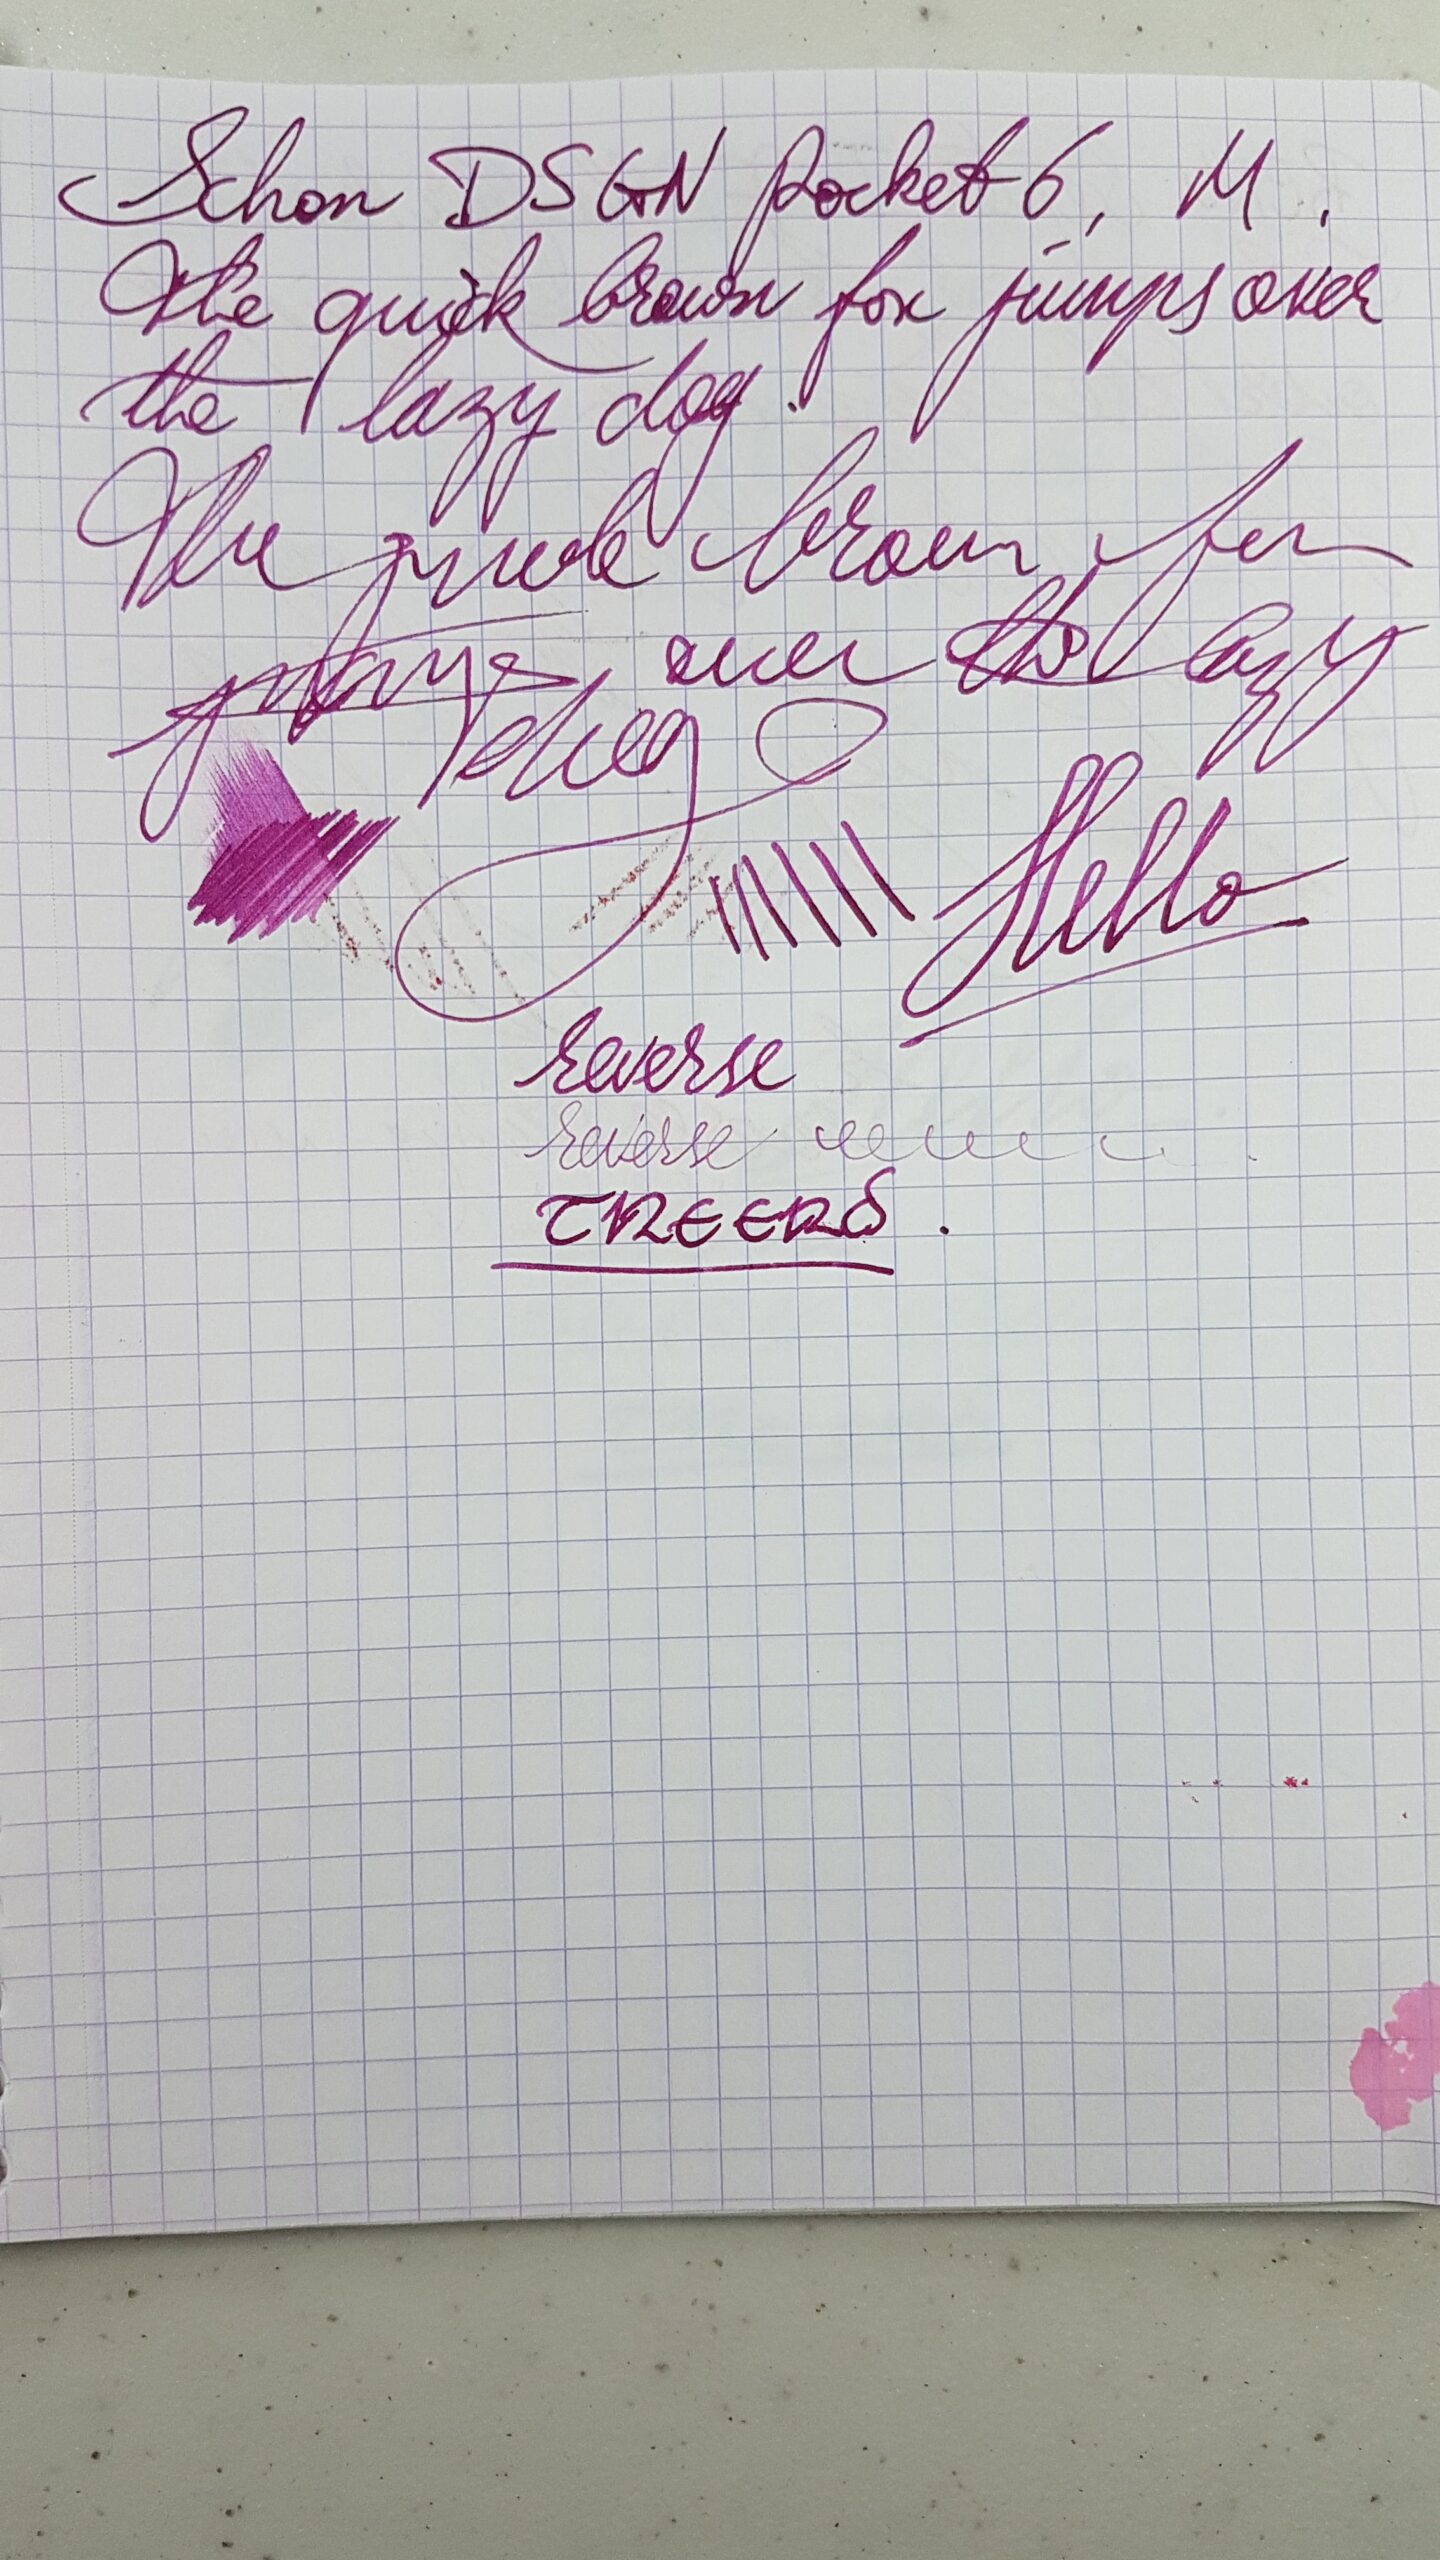 Schon DSGN Pocket 6, M.
The quick brown fox jumps over
the lazy dog.
The quick brown fox
jumps over the lazy
dog
Hello
reverse
reverse